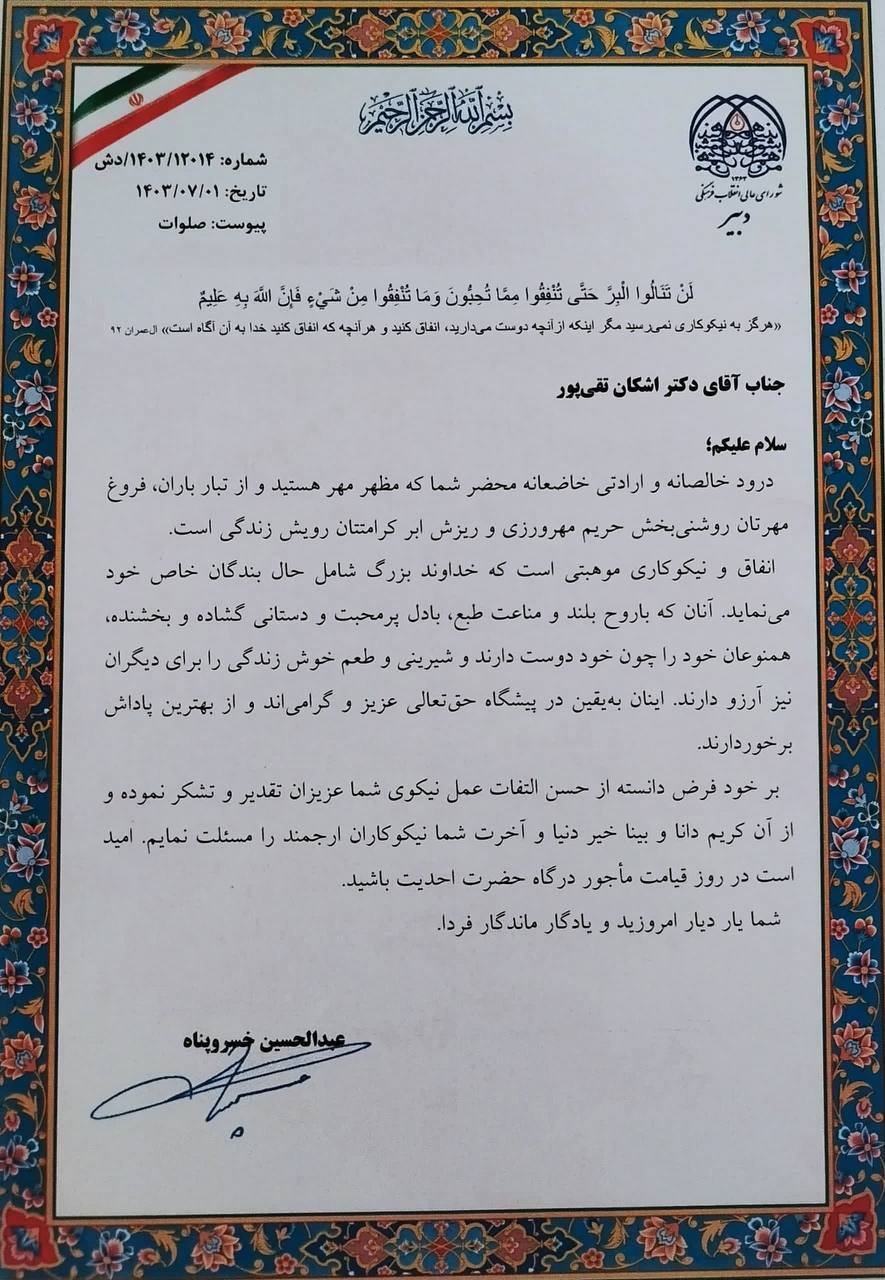 بسم الله الرحمن الرحیم
۱۳۶۳
شورای عالی انقلاب فرهنگی
دبیر
شماره: ۱۴۰۳/۱۲۰۱۴/دش
تاریخ: ۱۴۰۳/۰۷/۰۱
پیوست: صلوات
لَنْ تَنَالُوا الْبِرَّ حَتَّى تُنْفِقُوا مِمَّا تُحِبُّونَ وَمَا تُنْفِقُوا مِنْ شَيْءٍ فَإِنَّ اللَّهَ بِهِ عَلِيمٌ
«هرگز به نیکوکاری نمی‌رسید مگر اینکه از آنچه دوست می‌دارید، انفاق کنید و هرآنچه که انفاق کنید خدا به آن آگاه است» ال‌عمران ۹۲
جناب آقای دکتر اشکان تقی‌پور
سلام علیکم؛
درود خالصانه و ارادتی خاضعانه محضر شما که مظهر مهر هستید و از تبار باران، فروغ
مهرتان روشنی‌بخش حریم مهرورزی و ریزش ابر کرامتتان رویش زندگی است.
انفاق و نیکوکاری موهبتی است که خداوند بزرگ شامل حال بندگان خاص خود
می‌نماید. آنان که باروح بلند و مناعت طبع، بادل پرمحبت و دستانی گشاده و بخشنده،
همنوعان خود را چون خود دوست دارند و شیرینی و طعم خوش زندگی را برای دیگران
نیز آرزو دارند. اینان به‌یقین در پیشگاه حق‌تعالی عزیز و گرامی‌اند و از بهترین پاداش
برخوردارند.
بر خود فرض دانسته از حسن التفات عمل نیکوی شما عزیزان تقدیر و تشکر نموده و
از آن کریم دانا و بینا خیر دنیا و آخرت شما نیکوکاران ارجمند را مسئلت نمایم. امید
است در روز قیامت مأجور درگاه حضرت احدیت باشید.
شما یار دیار امروزید و یادگار ماندگار فردا.
عبدالحسین خسروپناه